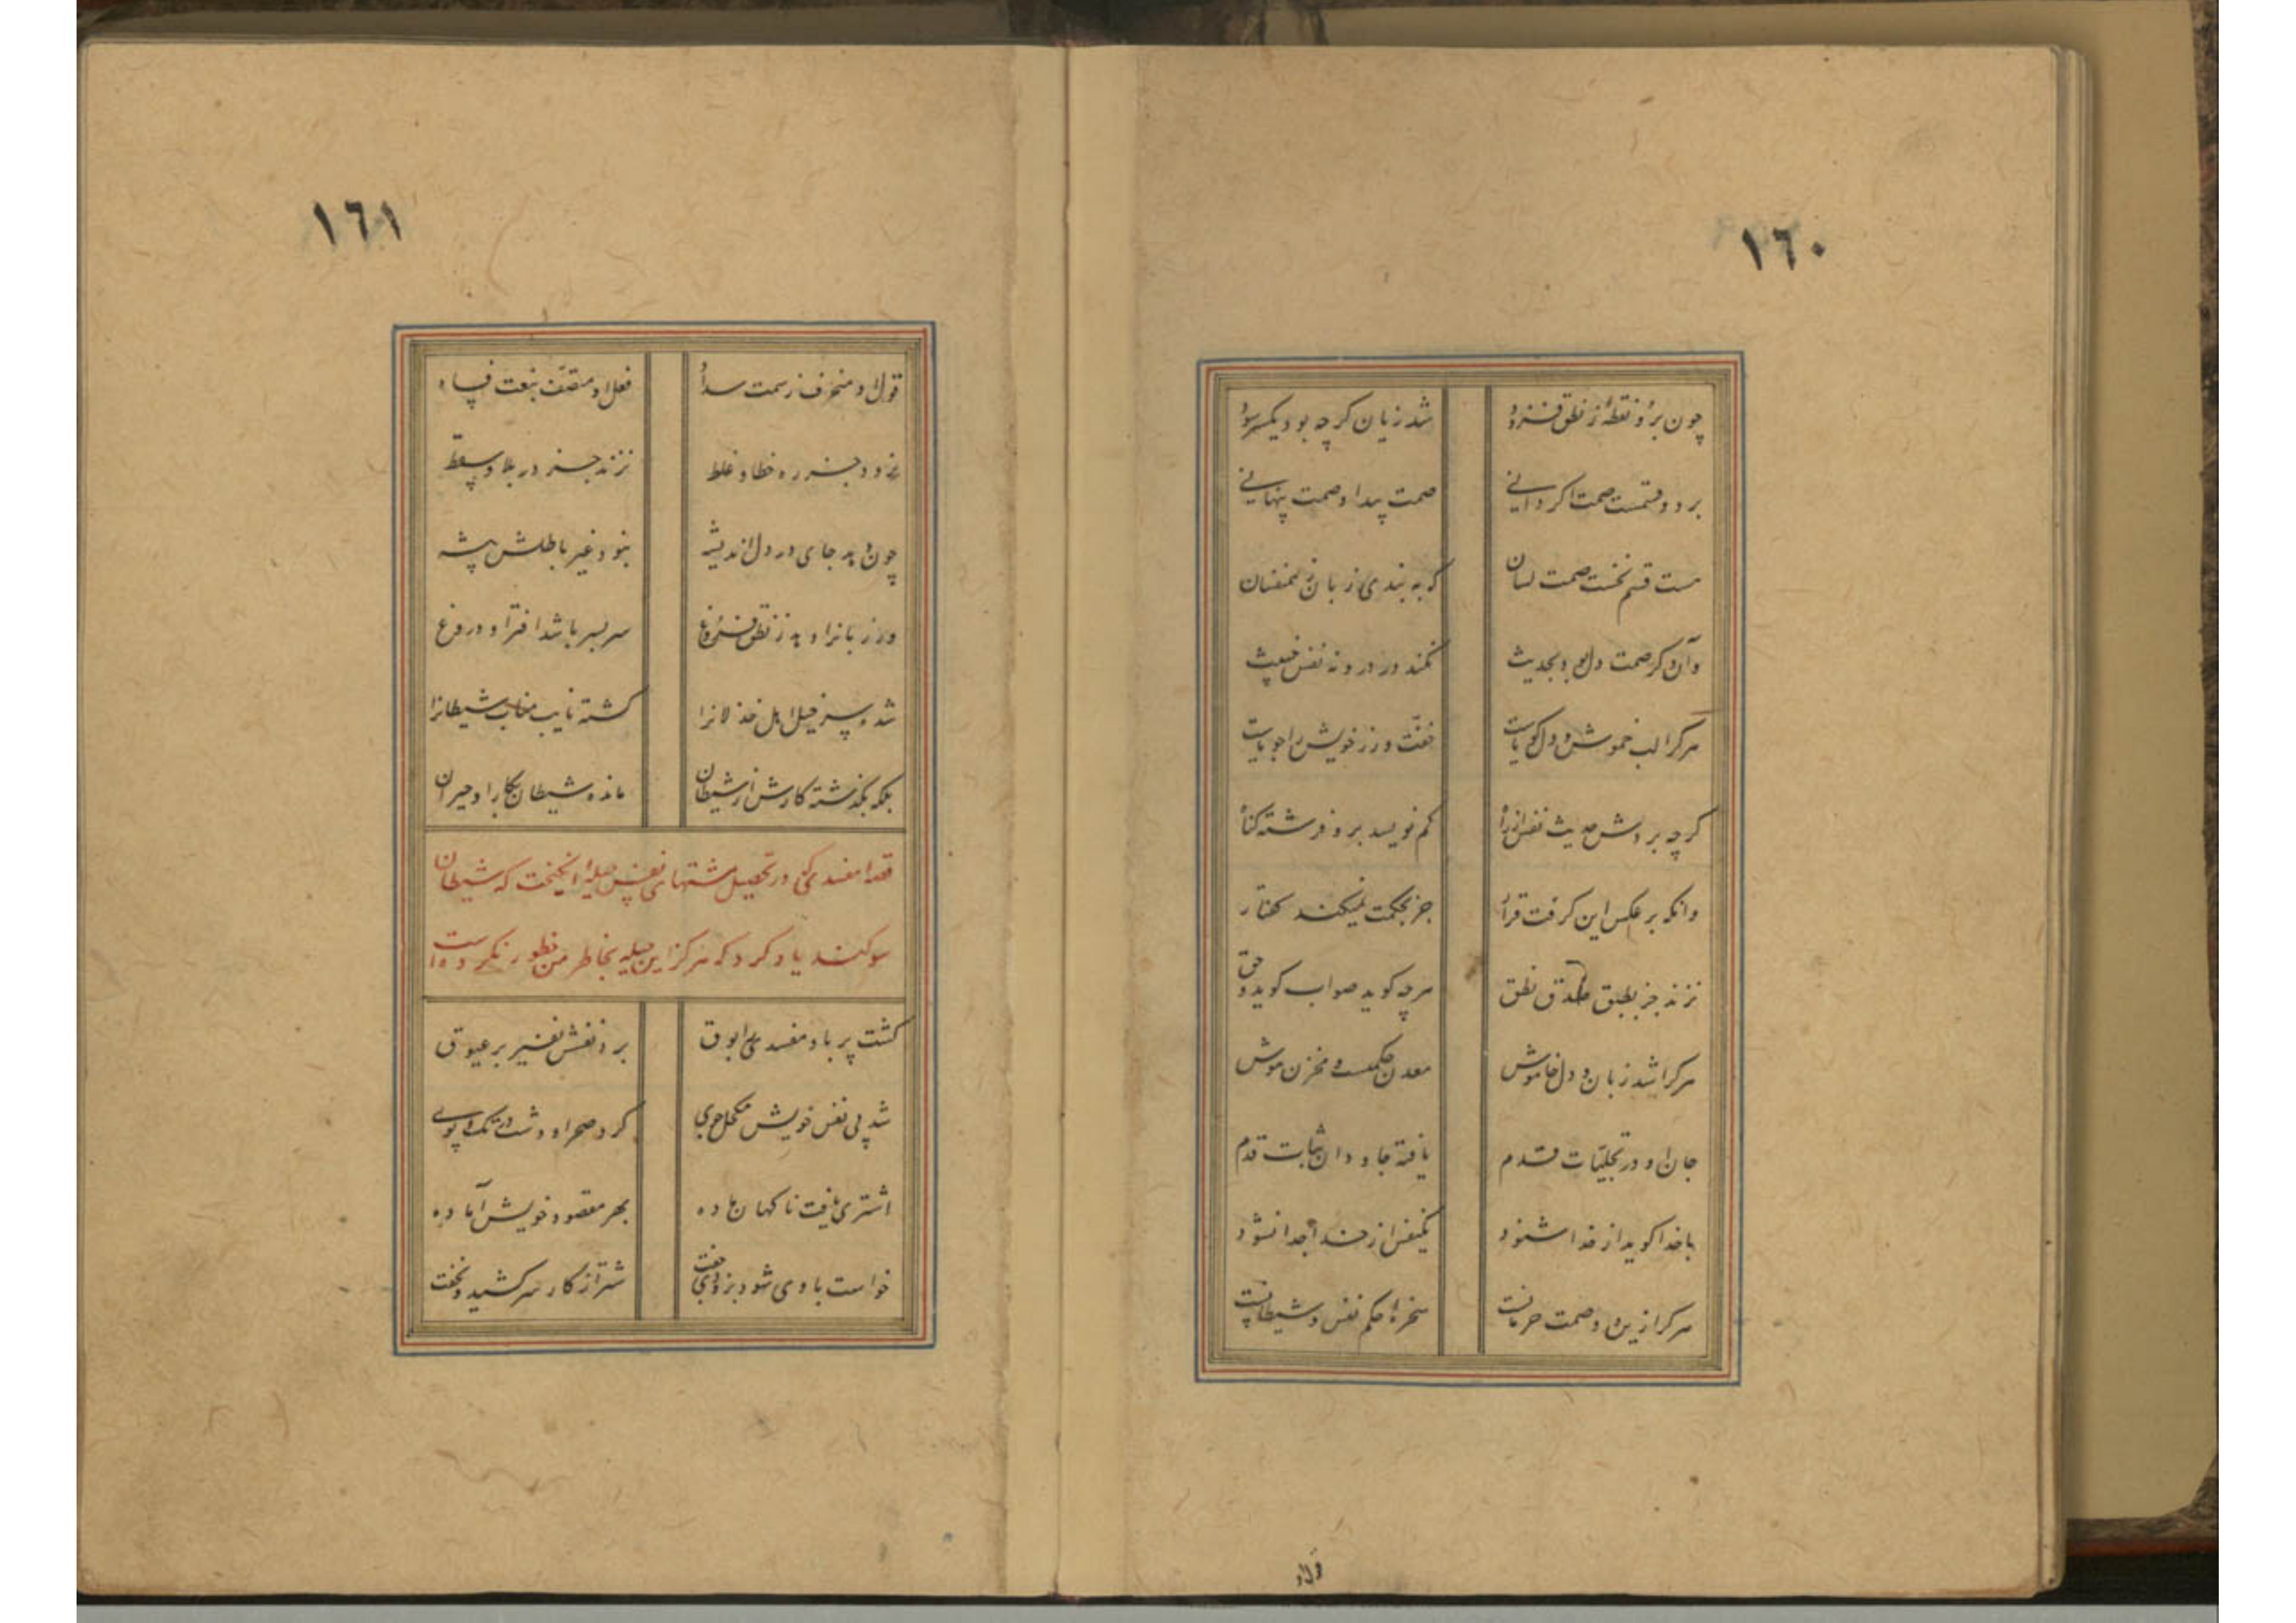 ١٦٠
چون برو نقطهٔ ز نطق فزود
شد زیان گر چه بود یکسر سود
بر دو قسمست صمت اگر دانی
صمت پیدا و صمت پنهانی
هست قسم نخست صمت لسان
که به بندی زبان ز همنفسان
وآن دگر صمت دل بود بحدیث
نکند در درونه نفس خبیث
هر کرا لب خموش و دل گویاست
خفت وزر خویش را جویاست
گر چه بر دوش حدیث نفس از راه
کم نویسد برو فرشته گناه
وانکه بر عکس این گرفت قرار
جز بحکمت نمیکند گفتار
نزند جز بطبق صدق نطق
هر چه گوید صواب گوید و حق
هر کرا شد زبان و دل خاموش
معدن حکمتست و مخزن هوش
جان او در تجلیّات قدم
یافته جاودان ثبات قدم
با خدا گوید از خدا شنود
یکنفس از خدا جدا نشود
هر کرا زین دو صمت حرمانست
سخرهٔ حکم نفس و شیطانست
قول او
١٦١
قول او منحرف ز سمت سداد
فعل او متصف بنعت فساد
نرود جز ره خطا و غلط
نزند جز در بلا و سقط
چون دهد جای در دل اندیشه
نبود غیر باطلش پیشه
ور زبانرا دهد ز نطق فروغ
سر بسر باشد افترا و دروغ
شده سرخیل اهل خذلانرا
گشته نایب مناب شیطانرا
بلکه بگذشته کارش از شیطان
مانده شیطان بکار او حیران
قصهٔ مفسدی که در تحصیل مشتهای نفس حیلهٔ انگیخت که شیطان
سوکند یاد کرد که هرگز این حیله بخاطر من خطور نکرده است
گشت پر باد مفسدی را بوق
برد نفسش نفیر بر عیوق
شد پی نفس خویش مکحل جوی
کرد صحرا و دشت در تک و پوی
اشتری یافت ناگهان ماده
بهر مقصود خویش آماده
خواست با وی شود بزودی جفت
شتر از کار سر کشید و نخفت